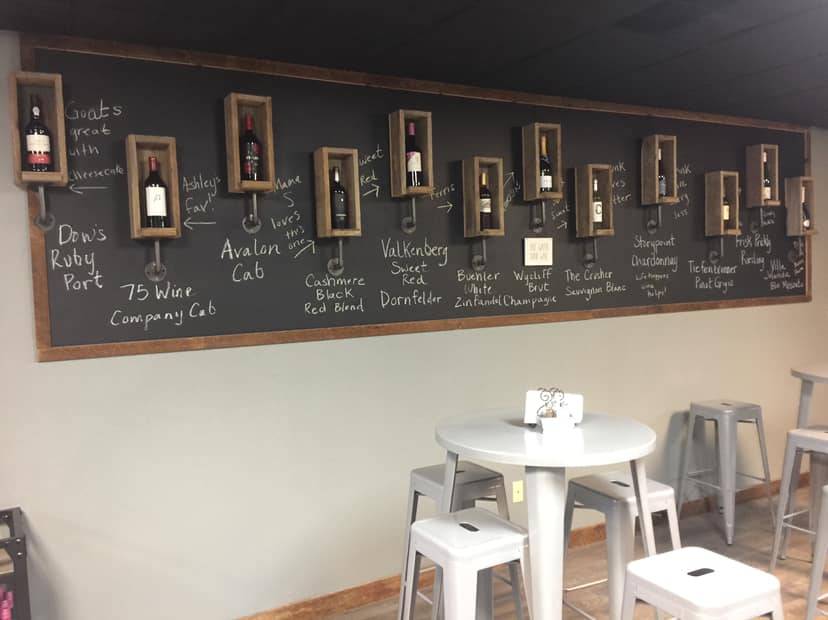 Goats
great
with
cheesecake
Dow's
Ruby
Port
75 Wine
Company Cab
Ashleys
fav!
Avalon
Cab
Mama
S
loves
this
one
Cashmere
Black
Red Blend
sweet
Red
Valkenberg
Sweet
Red
Dornfelder
Buehler
White
Zinfandel
Wycliff
Brut
Champagne
The Crusher
Sauvignon Blanc
Storypoint
Chardonnay
Life happens
wine
helps!
Tiefenbrunner
Pinot Grigio
Frisk Prickly
Riesling
Villa
Jolanda
Bio Moscato